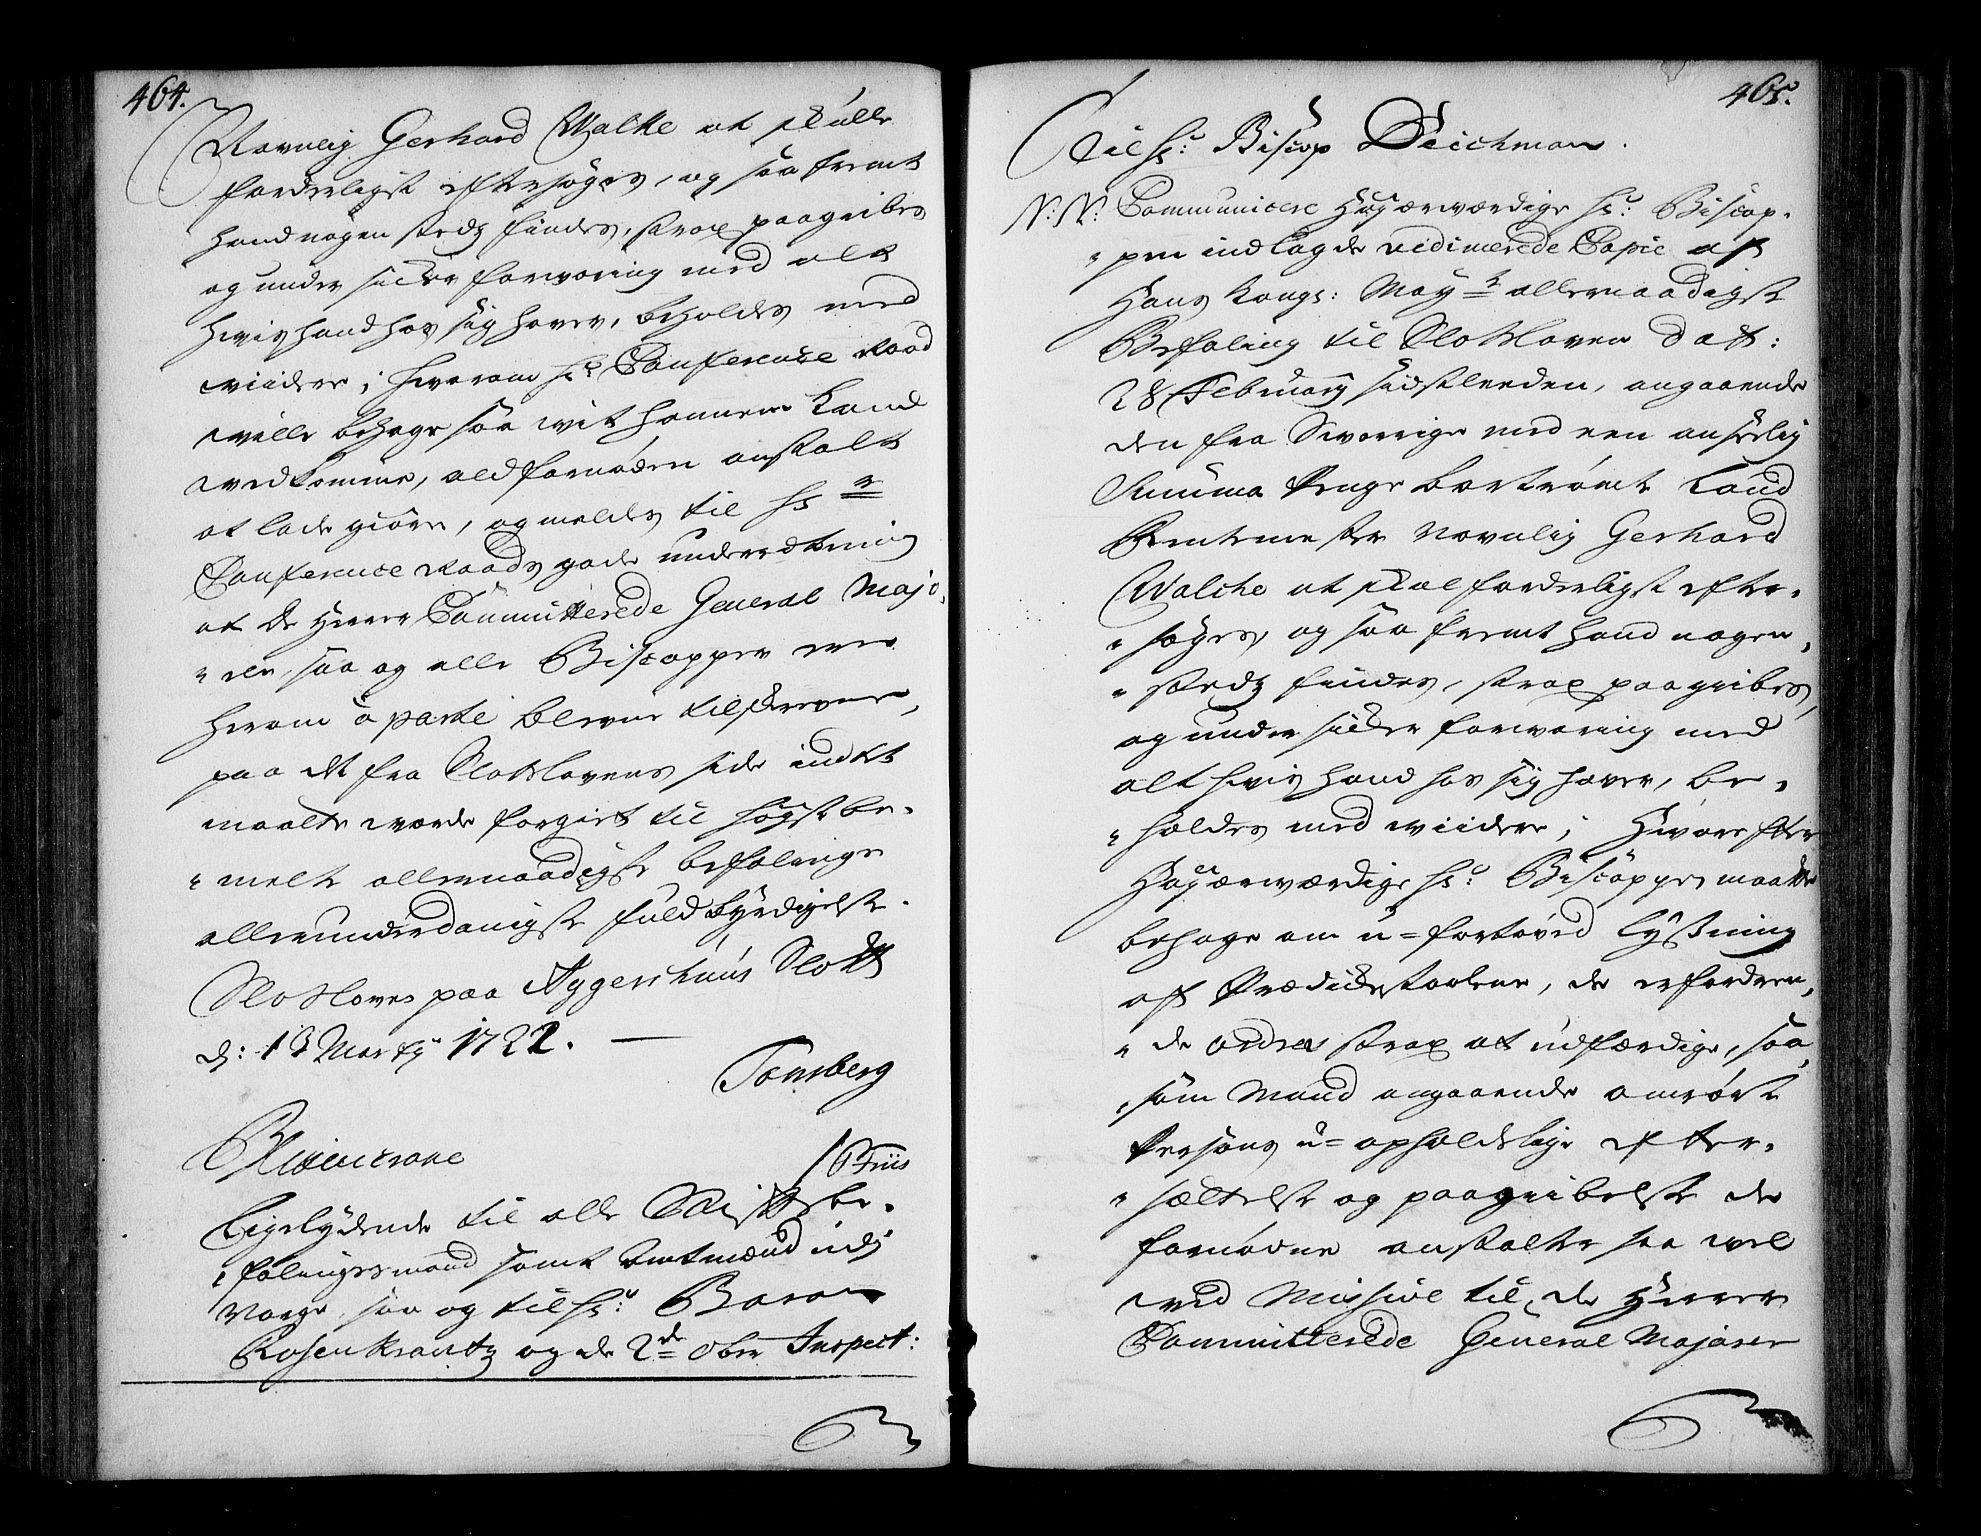 464.
Navnlig Gerhard Walke at skulle
forderligst eftersøges, og saa fremt
hand nogen stedz findes, strax paagribes
og under sicker forvaring med alt
hvis hand hos sig haver, beholdes med
viidere; hvorom hr Conference Raad
ville behage saa vit hannem kand
vedkomme, ald fornøden anstalt
at lade giøre, og meldes til hr
Conference Raads gode underretning
at de Herrer Committerede General Majo,
" rer, saa og alle Biscopper ere
herom á parte blevne tilskrevne,
paa det fra Slotslovens side indtet
maatte worde forgiet til høystbe,
" melte allernaadigste befalings
allerunderdanigste fuldbyrdigelse.
Slotsloven paa Aggershuus Slott
d: 13 Marty 1722.
Tonsberg
Blixencrone Friis
Ligelydende til alle Stiftsbe,
" falingsmænd samt Amtmænd udj
Norge, saa og til hr: Baron
Rosenkrantz og de 2de Ober Inspect:
465.
Til hr: Biscop Deichman.
N: N: Communicere Høyærværdige hr: Biscop,
" pen indlagde vidimerede Copie af
Hans Kongl: Mayts allernaadigste
Befaling til Slotsloven Dat:
28 February sidstleeden, angaaende
den fra Sverrige med een anseelig
Summa Penge bortrømte Land
Rentemester Navnlig Gerhard
Walche at skal forderligst efter,
" søges, og saa fremt hand nogen,
" stedz findes, strax paagribes,
og under sicker forvaring med
alt hvis hand hos sig haver, be,
" holdes med viidere; Hvorefter
Høyærværdige hr: Biscoppen maatte
behage om u=fortøved lysning
af Prædickestoelene, de erfordren,
" de ordres strax at udfærdige, saa,
" som Mand angaaende omrørte
Persons u=opholdelige efter,
" sættelse og paagribelse de
fornødne anstalter saa vel
ved Missive til de Herrer
Committerede General Majorer